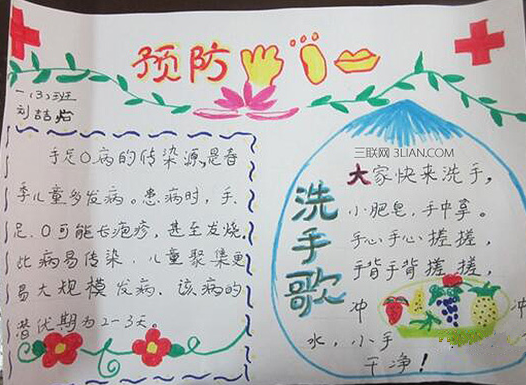 预防
三联网 3LIAN.COM
一(3)班
刘喆怡
手足口病的传染源,是春
季儿童多发病。患病时,手、
足、口可能长疱疹,甚至发烧.
此病易传染,儿童聚集更
易大规模发病、该病的
潜伏期为2-3天。
洗手歌
大家快来洗手,
小肥皂,手中拿。
手心手心搓搓,
手背手背搓搓,
冲 冲
水,小手
干净!